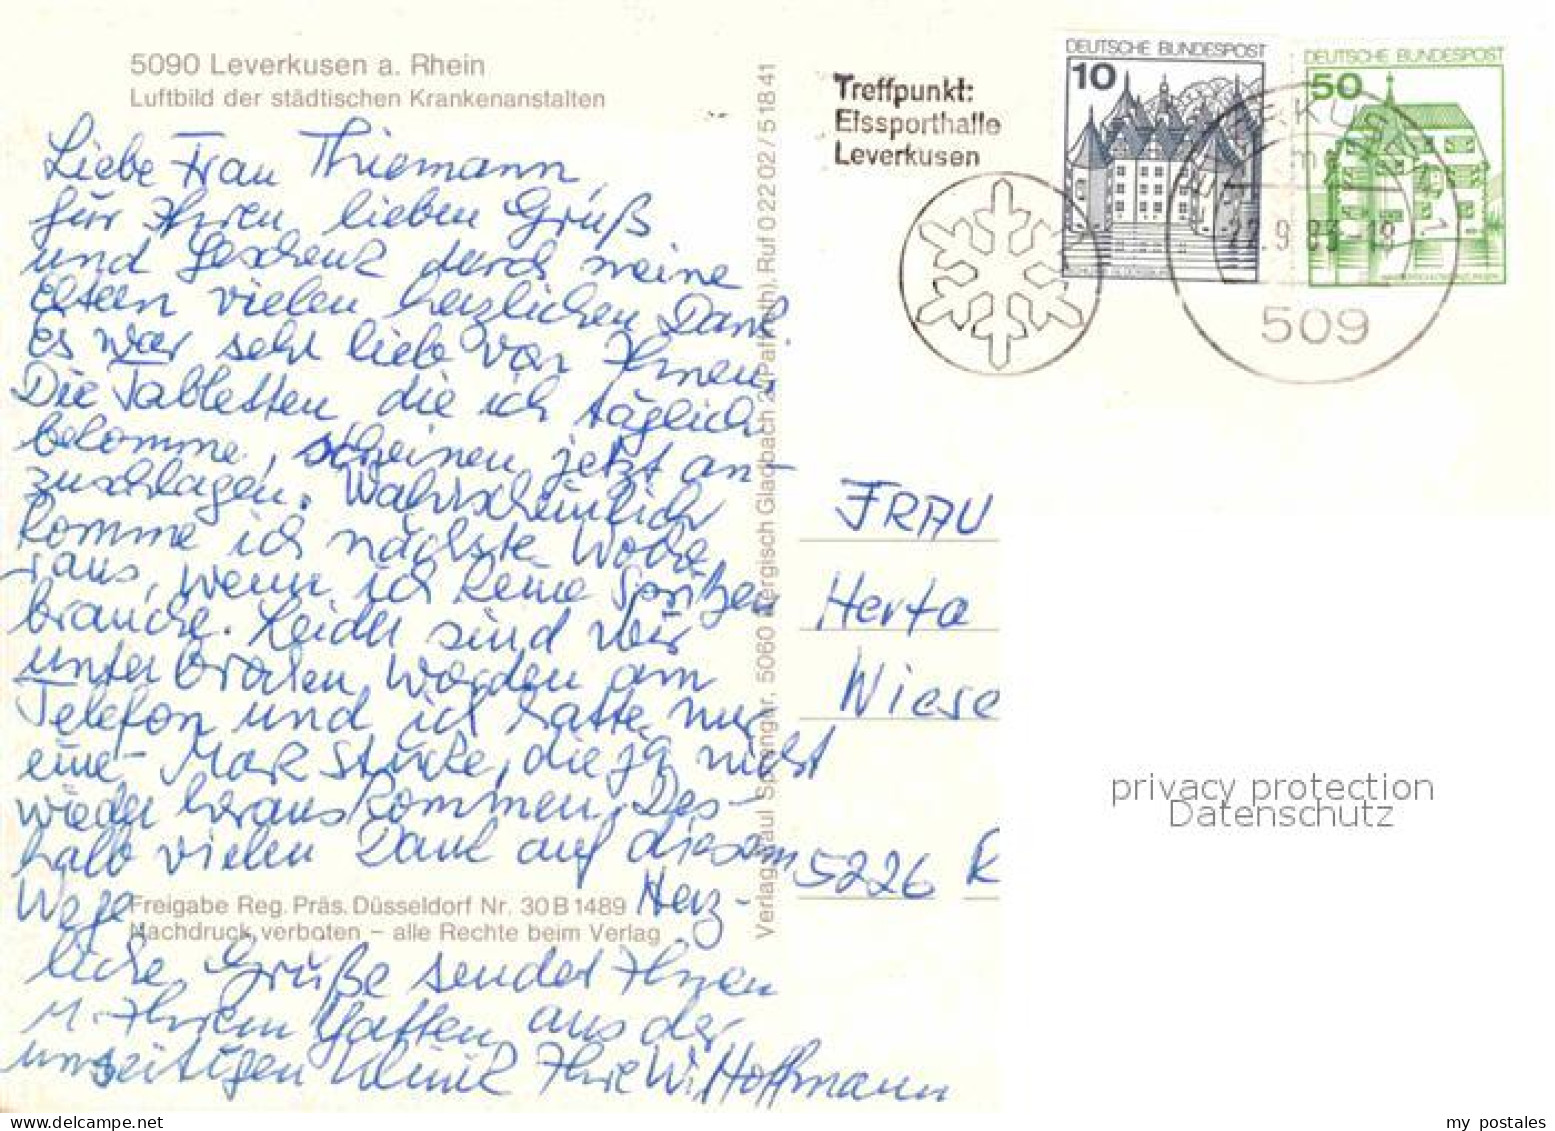 5090 Leverkusen a. Rhein
Luftbild der städtischen Krankenanstalten
Liebe Frau Thiemann,
für Ihren lieben Gruß
und Geschenk durch meine
Eltern vielen herzlichen Dank
Es war sehr lieb von Ihnen.
Die Tabletten, die ich täglich
bekomme, scheinen jetzt an-
zuschlagen. Wahrscheinlich
komme ich nächste Woche
raus, wenn ich keine Spritzen
brauche. Leider sind wir
unterbrochen worden am
Telefon und ich hatte nur
eine- Mark Stücke, die ja nicht
wieder herauskommen. Des-
halb vielen Dank auf diesem
Wege Herz-
Freigabe Reg. Präs. Düsseldorf Nr. 30 B 1489
Nachdruck verboten – alle Rechte beim Verlag
liche Grüße sendet Ihnen
u. Ihrem Gatten aus der
Klinik Ihre W. Hoffmann
Verlag Paul Spranger, 5060 Bergisch Gladbach 2 (Paffrath), Ruf 0 22 02 / 5 18 41
Treffpunkt:
Eissporthalle
Leverkusen
DEUTSCHE BUNDESPOST
10
DEUTSCHE BUNDESPOST
50
22.9.83-18
509
FRAU
Herta
Wiese
5226 R
privacy protection
Datenschutz
my postales